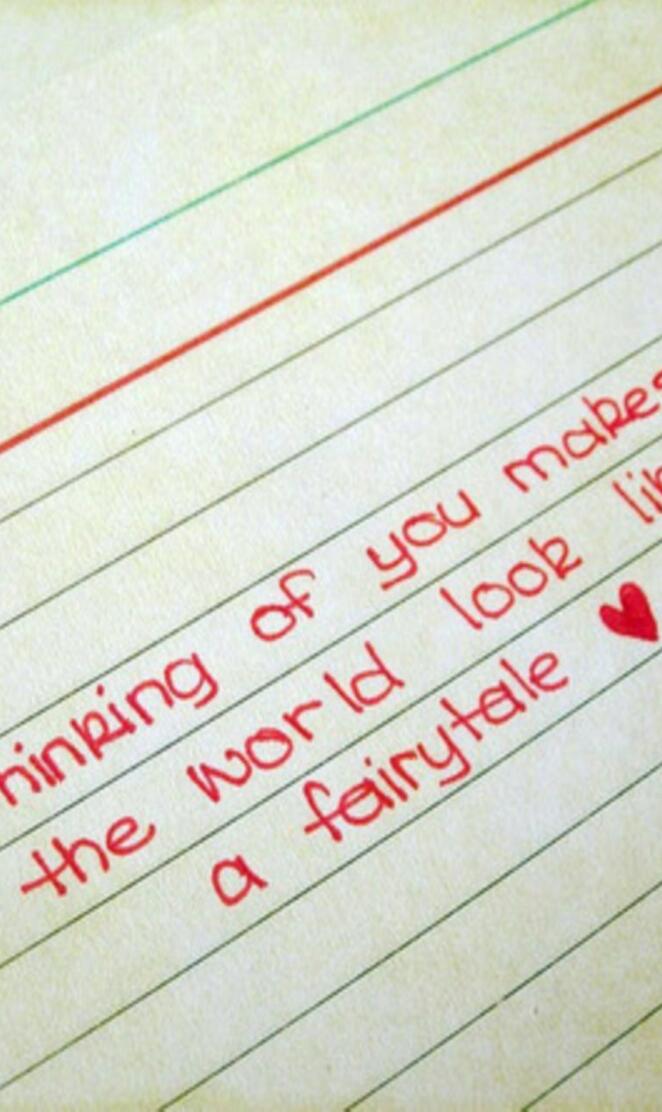 hinking of you makes
the world look lik
a fairytale ♥